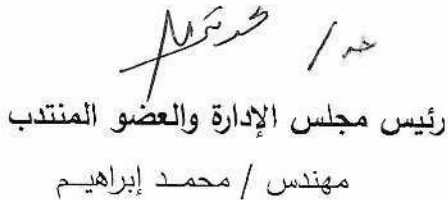 رئيس مجلس الإدارة والعضو المنتدب
مهندس / محمد إبراهيم